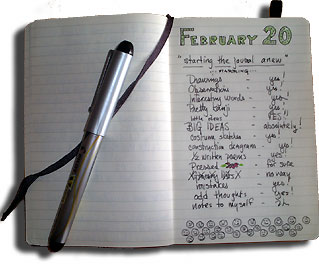 FEBRUARY 20
"starting the journal anew"
Drawings - yes!
Observations - yes!
Interesting words - yes!
Pretty kanji - yes!
little ideas - YES!
BIG IDEAS - absolutely!
costume sketches - yes!
construction diagrams - yo!
1/2 written poems - yes
Pressed - for sure
X X - no way
mistakes - yes!
odd thoughts - yes!
notes to myself -